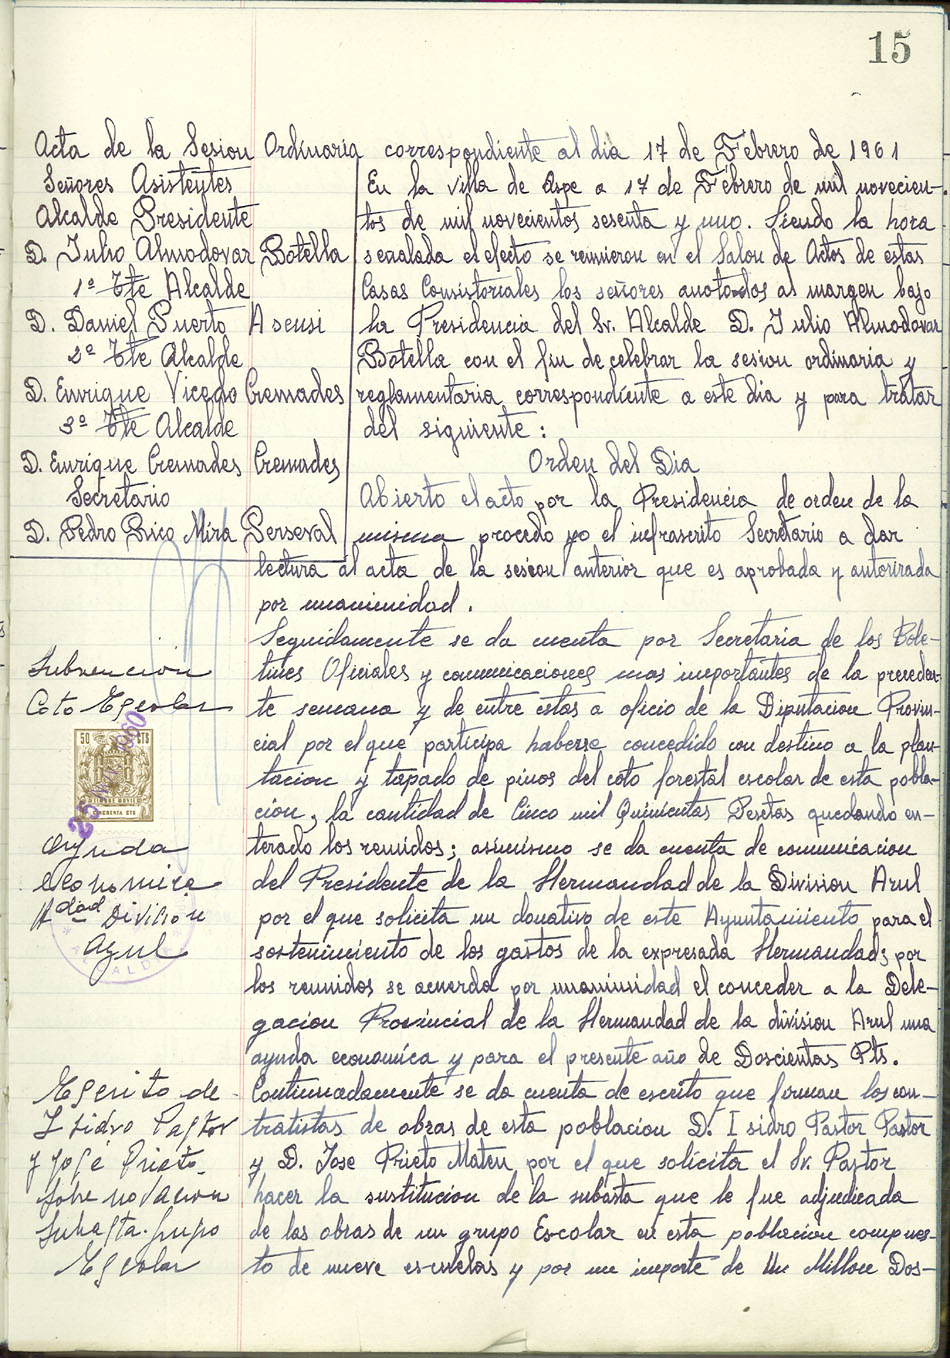 15
Acta de la Sesion Ordinaria correspondiente al dia 17 de Febrero de 1961
Señores Asistentes
Alcalde Presidente
D. Julio Almodovar Botella
1º Tte Alcalde
D. Daniel Puerto Asensi
2º Tte Alcalde
D. Enrique Vicedo Cremades
3º Tte Alcalde
D. Enrique Cremades Cremades
Secretario
D. Pedro Rico Mira Perseval
En la villa de Aspe a 17 de Febrero de mil novecien-
tos de mil novecientos sesenta y uno. Siendo la hora
senalada el efecto se reunieron en el Salon de Actos de estas
Casas Consistoriales los señores anotados al margen bajo
la Presidencia del Sr. Alcalde D. Julio Almodovar
Botella con el fin de celebrar la sesion ordinaria y
reglamentaria correspondiente a este dia y para tratar
del siguiente:
Orden del Dia
Abierto el acto por la Presidencia de orden de la
misma procedo yo el infrascrito Secretario a dar
lectura al acta de la sesion anterior que es aprobada y autorizada
por unanimidad.
Subvencion
Coto Escolar
Seguidamente se da cuenta por Secretaria de los Bole-
tines Oficiales y comunicaciones mas importantes de la preceden-
te semana y de entre estas a oficio de la Diputacion Provin-
cial por el que participa haberse concedido con destino a la plan-
tacion y tapado de pinos del coto forestal escolar de esta pobla-
cion, la cantidad de Cinco mil Quinientas Pesetas quedando en-
terado los reunidos; asimismo se da cuenta de comunicacion
del Presidente de la Hermandad de la Division Azul
por el que solicita un donativo de este Ayuntamiento para el
sostenimiento de los gastos de la expresada Hermandad; por
los reunidos se acuerda por unanimidad el conceder a la Dele-
gacion Provincial de la Hermandad de la division Azul una
ayuda economica y para el presente año de Doscientas Pts.
50 CTS
1960
Ayuda
economica
Hdad Division
Azul
ALCALD
Escrito de
Isidro Pastor
y José Prieto
sobre novacion
Subasta Grupo
Escolar
Continuadamente se da cuenta de escrito que firman los con-
tratistas de obras de esta poblacion D. Isidro Pastor Pastor
y D. Jose Prieto Mateu por el que solicita el Sr. Pastor
hacer la sustitucion de la subasta que le fue adjudicada
de las obras de un grupo Escolar en esta poblacion compues-
to de nueve escuelas y por un importe de Un Millon Dos-